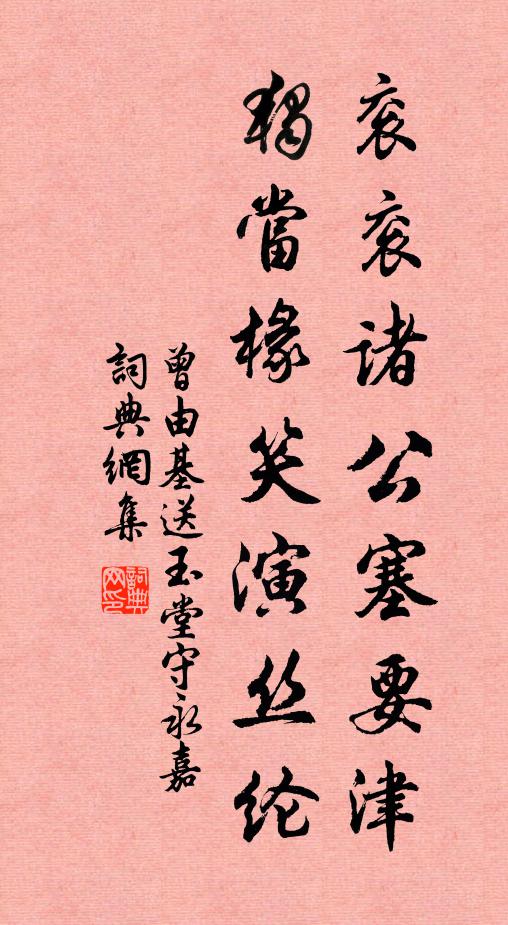 衮衮诸公塞要津
獨當椽笑演丝纶
曾由基送玉堂守永嘉
詞典網集
詞典网印